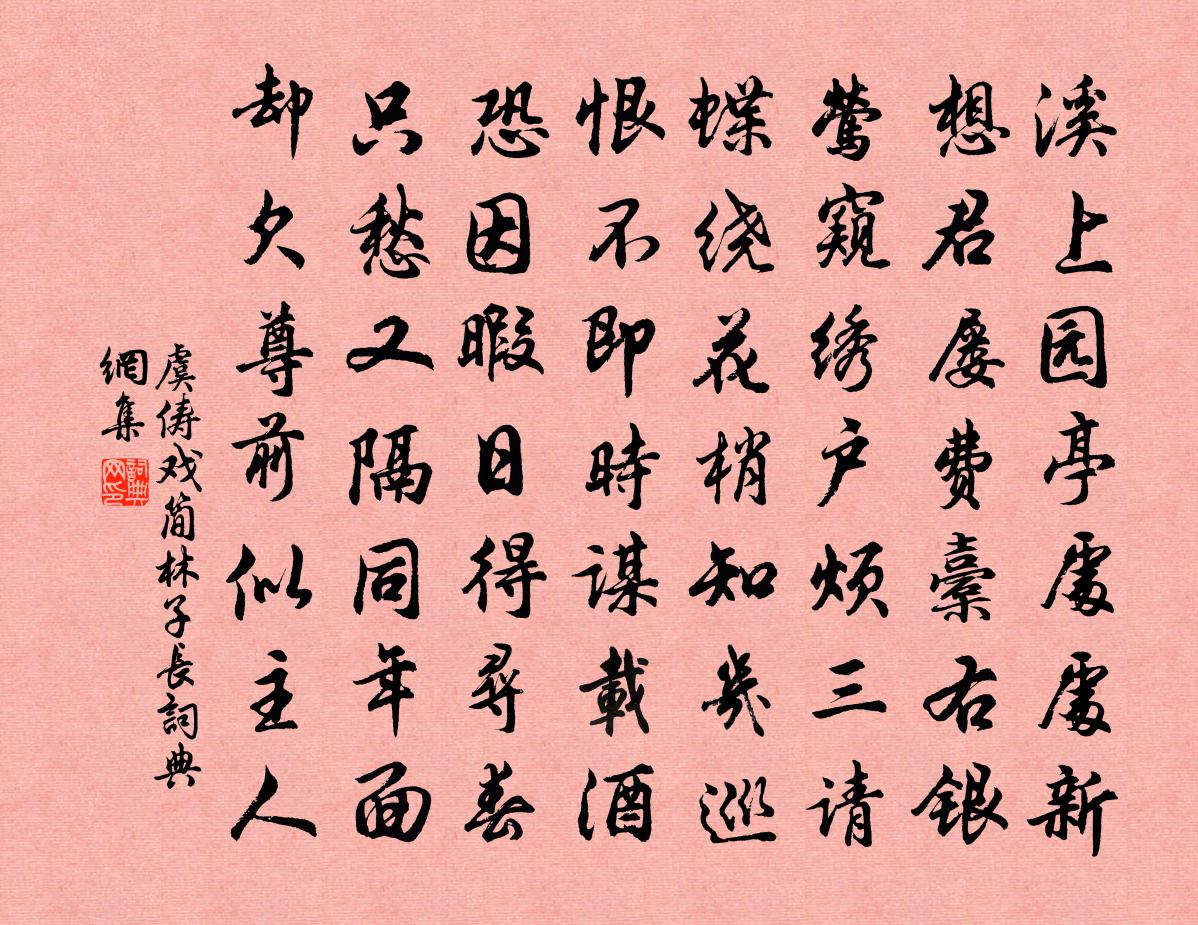 溪上园亭處處新
想君屡费橐右银
莺窥绣户烦三请
蝶绕花梢知幾巡
恨不即時谋載酒
恐因暇日得尋春
只愁又隔同年面
却欠尊前似主人
虞俦戏简林子長詞典
網集
詞典網印